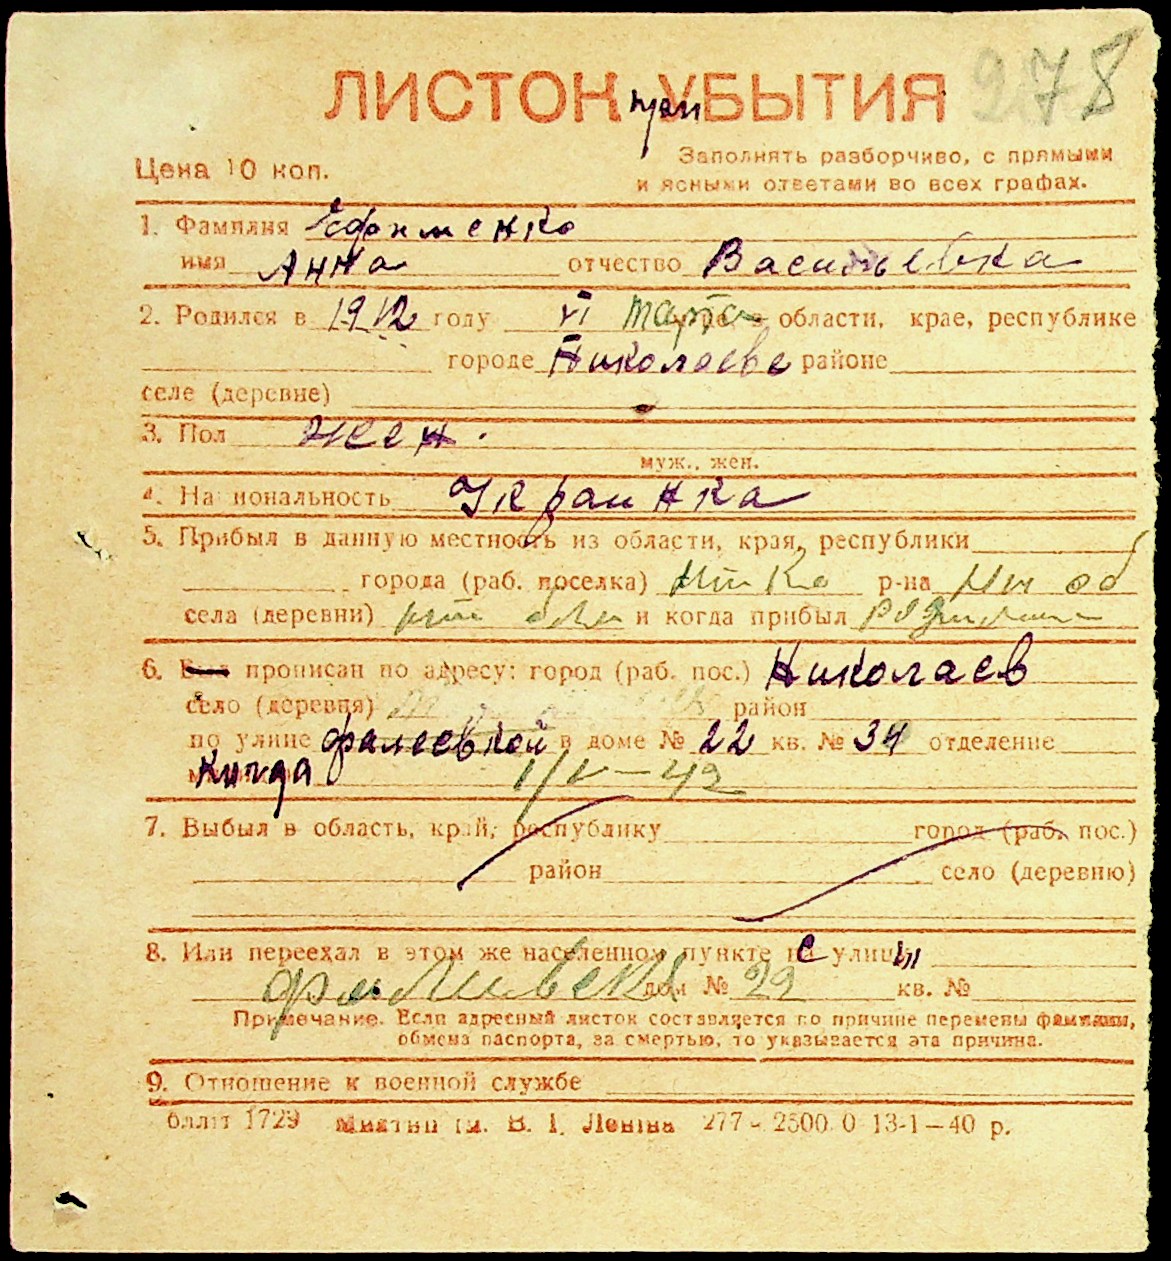 278
ЛИСТОК УБЫТИЯ
при
Цена 10 коп.
Заполнять разборчиво, с прямыми
и ясными ответами во всех графах.
1. Фамилия Ефименко
имя Анна отчество Васильевна
2. Родился в 1912 году VI марта области, крае, республике
городе Николаеве районе
селе (деревне)
3. Пол жен.
муж., жен.
4. Национальность Украинка
5. Прибыл в данную местность из области, края, республики
города (раб. поселка) р-на
села (деревни) и когда прибыл
6. прописан по адресу: город (раб. пос.) Николаев
село (деревня) район
по улице фалеевской в доме № 22 кв. № 34 отделение
Когда 1/V-42
7. Выбыл в область, край, республику город (раб. пос.)
район село (деревню)
8. Или переехал в этом же населенном пункте с улицы
дом № 29 кв. №
Примечание. Если адресный листок составляется по причине перемены фамилии,
обмена паспорта, за смертью, то указывается эта причина.
9. Отношение к военной службе
бллiт 1729 ім. В. І. Леніна 277-2500.0 13-1-40 р.